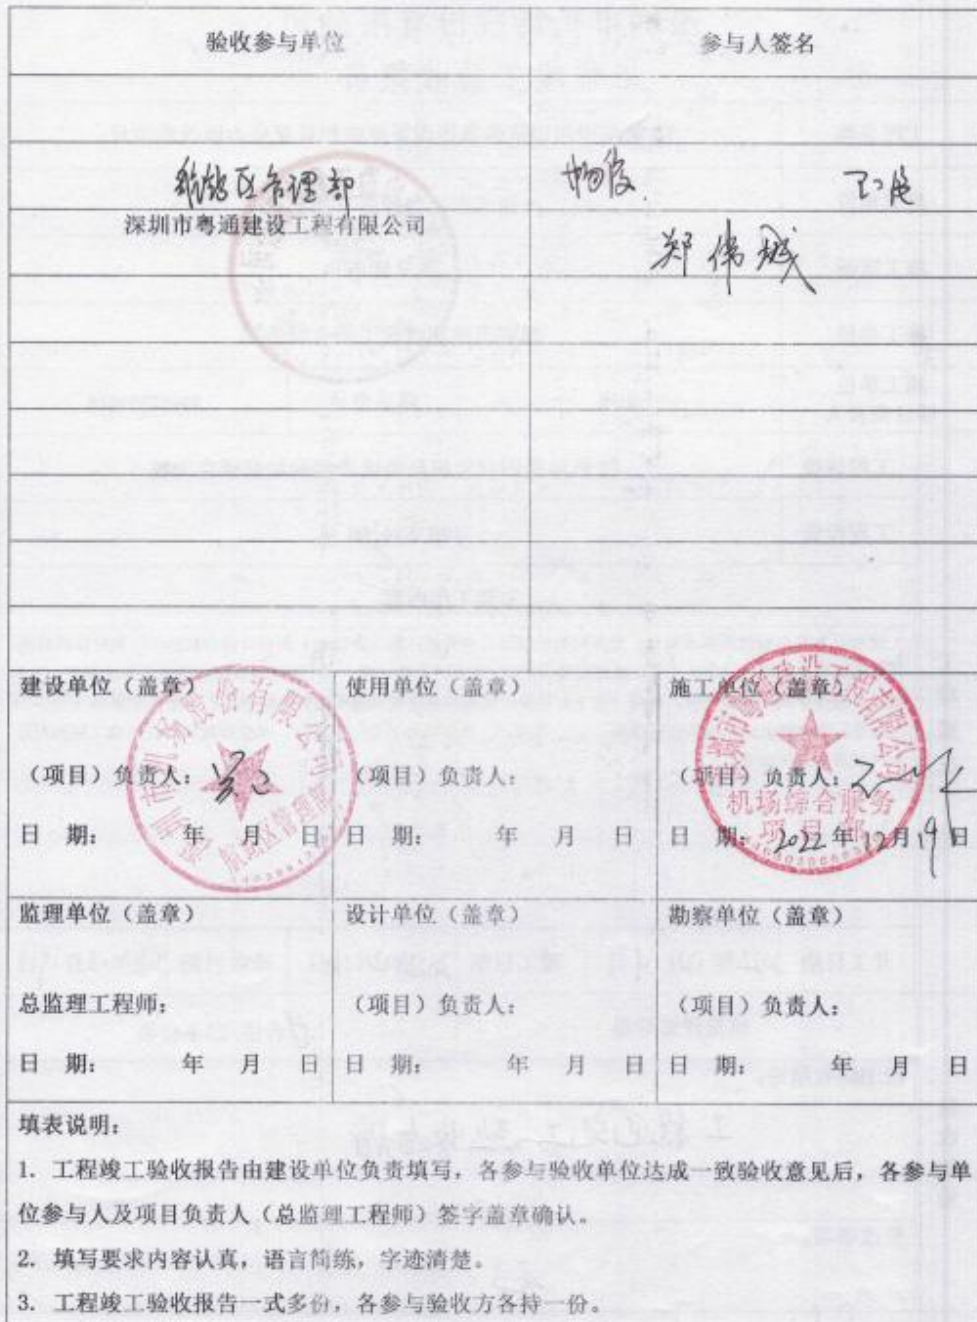 验收参与单位 参与人签名
航站区管理部
深圳市粤通建设工程有限公司 郑伟城
建设单位（盖章） 使用单位（盖章） 施工单位（盖章）
（项目）负责人： （项目）负责人： （项目）负责人：
机场综合服务
项目部
日 期： 年 月 日 日 期： 年 月 日 日 期： 2022年12月19日
监理单位（盖章） 设计单位（盖章） 勘察单位（盖章）
总监理工程师： （项目）负责人： （项目）负责人：
日 期： 年 月 日 日 期： 年 月 日 日 期： 年 月 日
填表说明：
1. 工程竣工验收报告由建设单位负责填写，各参与验收单位达成一致验收意见后，各参与单
位参与人及项目负责人（总监理工程师）签字盖章确认。
2. 填写要求内容认真，语言简练，字迹清楚。
3. 工程竣工验收报告一式多份，各参与验收方各持一份。